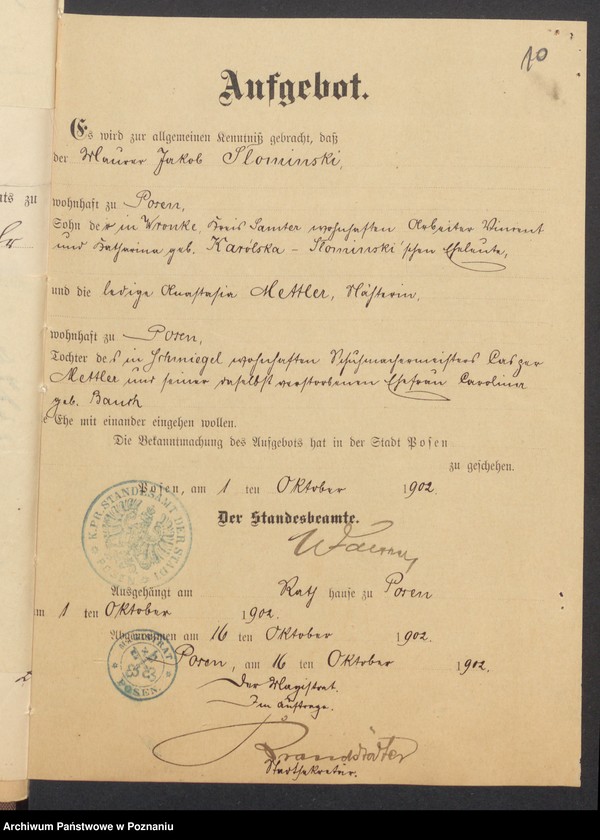 10
Aufgebot.
Es wird zur allgemeinen Kenntniß gebracht, daß
der Maurer Jakob Slominski,
nts zu
wohnhaft zu Posen,
Sohn der in Wronke, Kreis Samter wohnhaften Arbeiter Vincent
und Katharina geb. Karólska - Slominski'schen Eheleute,
und die ledige Anastasia Mettler, Näherin,
wohnhaft zu Posen,
Tochter des in Schmiegel wohnhaften Schuhmachermeisters Casper
Mettler und seiner daselbst verstorbenen Ehefrau Carolina
geb. Bauch
e Ehe mit einander eingehen wollen.
Die Bekanntmachung des Aufgebots hat in der Stadt Posen
zu geschehen.
Posen, am 1 ten Oktober 1902.
Der Standesbeamte.
K. PR. STANDESAMT DER STADT POSEN
Ausgehängt am Rathhause zu Posen
am 1 ten Oktober 1902.
Abgenommen am 16 ten Oktober 1902.
MAGISTRAT POSEN.
Posen, am 16 ten Oktober 1902.
Der Magistrat.
Im Auftrage.
Brandstädter
Stadtsekretär.
Archiwum Państwowe w Poznaniu